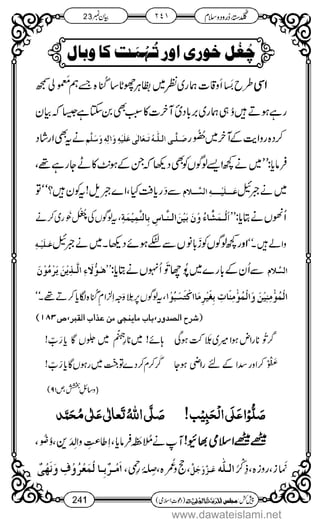 گلدستۂ درود و سلام ۲٤۱ بیان نمبر 23
چُغل خوری اور تُہمت کا وبال
اسی طرح بسا اوقات ہماری نظر میں بظاہر چھوٹا سا گناہ جسے ہم معمولی سمجھ
رہے ہوتے ہیں وہی ہماری بربادیِ آخرت کا سبب بھی بن سکتا ہے جیسا کہ بیان
کردہ روایت کے آخر میں حُضُور صَلَّی اللہُ تَعَالٰی عَلَیْہِ وَاٰلِہٖ وَسَلَّم نے یہ بھی ارشاد
فرمایا: ’’میں نے کچھ ایسے لوگوں کو بھی دیکھا کہ جن کے ہونٹ کاٹے جارہے تھے،
میں نے جبرئیل عَلَیْہِ السَّلَام سے دریافت کیا، اے جبرئیل! یہ کون ہیں؟‘‘ تو
اُنھوں نے بتایا: ’’اَلْمَشَّاءُوْنَ بَیْنَ النَّاسِ بِالنَّمِیْمَۃِ، یہ لوگوں کی چُغل خوری کرنے
والے ہیں۔‘‘ اور کچھ لوگوں کو زبانوں سے لٹکے ہوئے دیکھا۔ میں نے جبرئیل عَلَیْہِ
السَّلَام سے اُن کے بارے میں پوچھا تو اُنہوں نے بتایا: ’’ھٰؤُلَاءِ الَّذِیْنَ یَرْمُوْنَ
الْمُؤْمِنِیْنَ وَالْمُؤْمِنٰتِ بِغَیْرِ مَا اکْتَسَبُوْا، یہ لوگوں پر بلا وجہ اِلزامِ گناہ لگایا کرتے تھے۔‘‘
(شرح الصدور، باب ماینجی من عذاب القبر، ص۱۸۳)
گر تُو ناراض ہوا میری ہلاکت ہوگی ہائے! میں نارِ جہنم میں جلوں گا یا ربّ!
عَفْو کر اور سدا کے لئے راضی ہوجا گر کرم کر دے تو جنّت میں رہوں گا یا ربّ!
(وسائل بخشش، ص۹)
صَلُّوْا عَلَی الْحَبِیْب! صَلَّی اللہُ تَعَالٰی عَلٰی مُحَمَّد
میٹھے میٹھے اسلامی بھائیو! آپ نے مُلاحَظہ فرمایا، اِطاعتِ والِدَین، وُضُو،
نَماز، روزہ، ذِکْرُ اللہ عَزَّوَجَلَّ، حج و عُمرہ، صِلۂ رِحمی، اَمْرٌ بِالْمَعْرُوْفِ وَنَہْیٌ
241
www.dawateislami.net